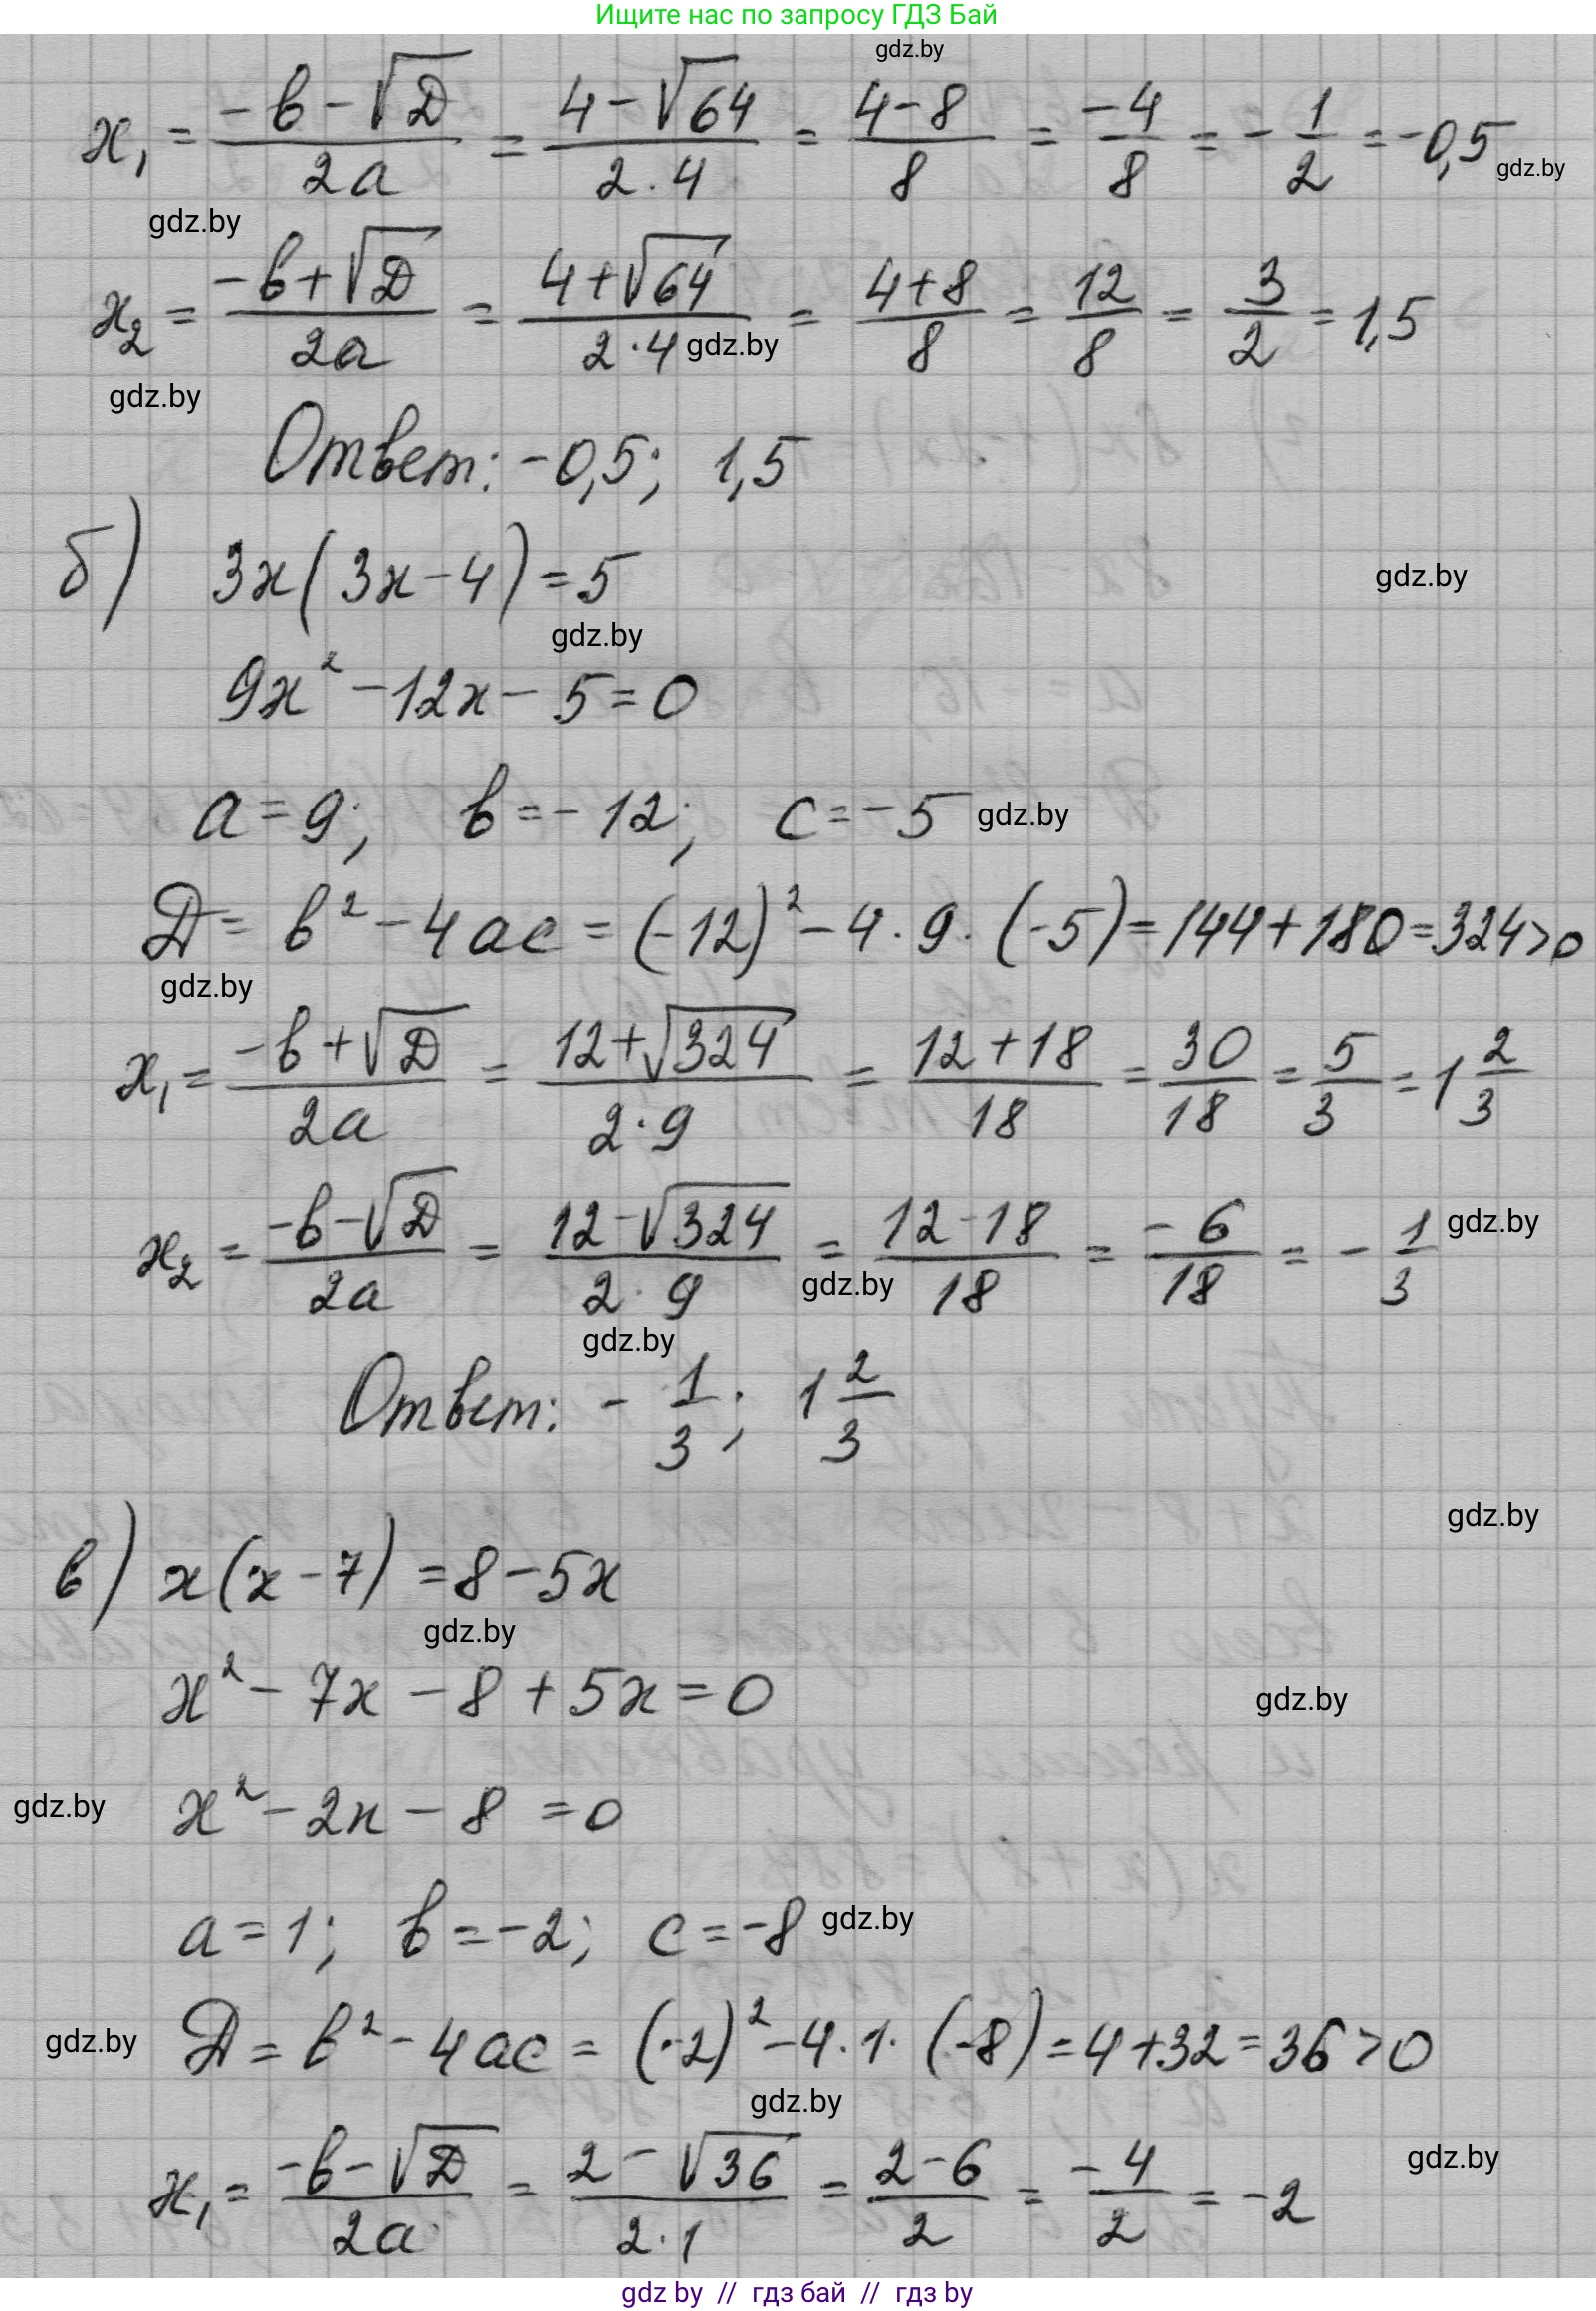 Ищите нас по запросу ГДЗ Бай
gdz.by
x₁ = (-b - √D)/(2a) = (4 - √64)/(2·4) = (4-8)/8 = -4/8 = -1/2 = -0,5 gdz.by
gdz.by
x₂ = (-b + √D)/(2a) = (4 + √64)/(2·4) = (4+8)/8 = 12/8 = 3/2 = 1,5
gdz.by
gdz.by
Ответ: -0,5; 1,5
б) 3x(3x-4)=5
gdz.by
gdz.by
9x² - 12x - 5 = 0
a = 9; b = -12; c = -5 gdz.by
D = b² - 4ac = (-12)² - 4·9·(-5) = 144 + 180 = 324 > 0
gdz.by
x₁ = (-b + √D)/(2a) = (12 + √324)/(2·9) = (12+18)/18 = 30/18 = 5/3 = 1 2/3
x₂ = (-b - √D)/(2a) = (12 - √324)/(2·9) = (12-18)/18 = -6/18 = -1/3 gdz.by
gdz.by
gdz.by
Ответ: -1/3; 1 2/3
gdz.by
в) x(x-7) = 8-5x
gdz.by
x² - 7x - 8 + 5x = 0
gdz.by
gdz.by x² - 2x - 8 = 0
a = 1; b = -2; c = -8 gdz.by
gdz.by D = b² - 4ac = (-2)² - 4·1·(-8) = 4+32 = 36 > 0
gdz.by
x₁ = (-b - √D)/(2a) = (2 - √36)/(2·1) = (2-6)/2 = -4/2 = -2
gdz.by
gdz by // гдз бай // гдз by